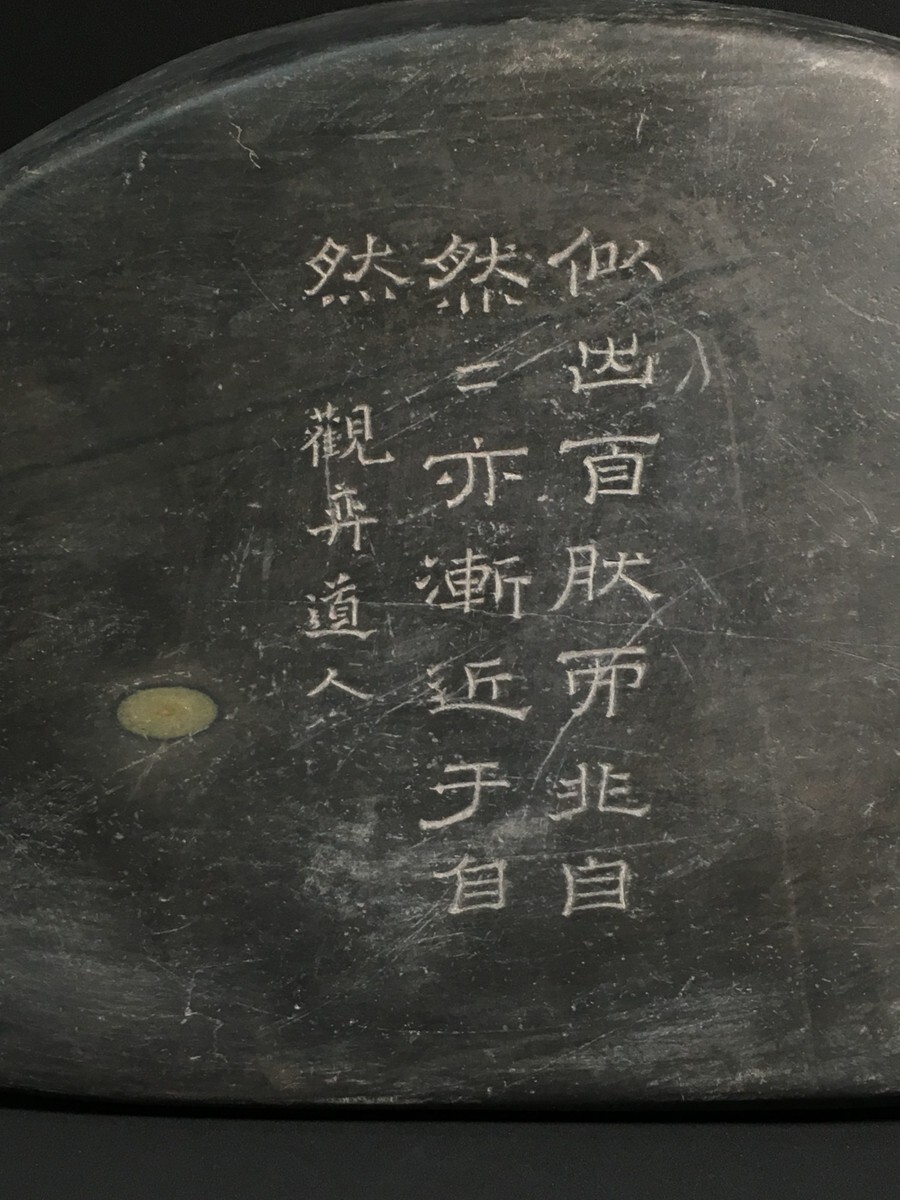 似百肰而非自
然〻亦漸近于自
然
觀弈道人